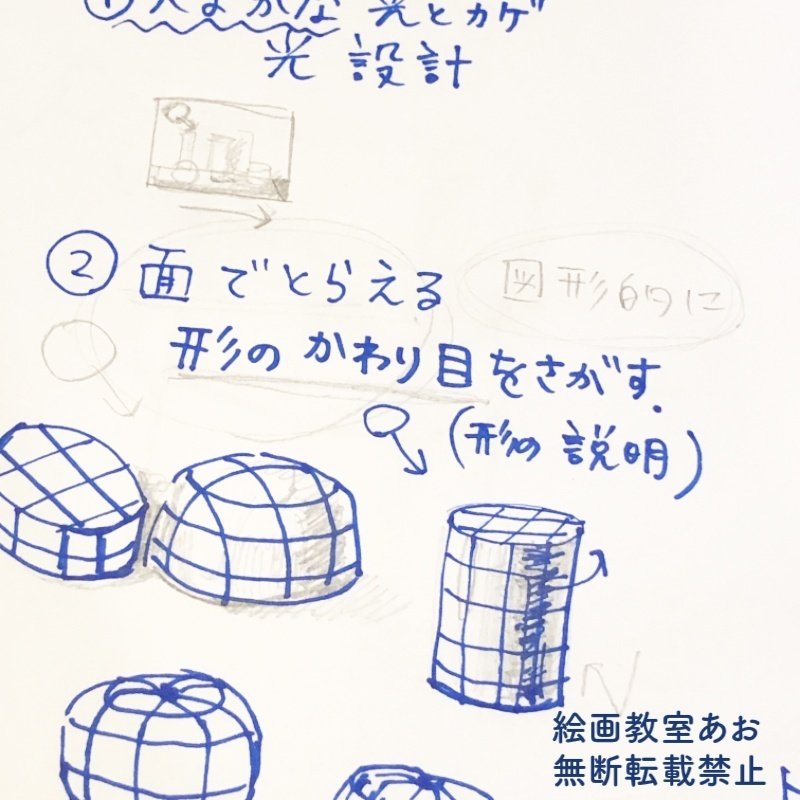 ①大まかな 光とカゲ
光 設計
② 面でとらえる
図形的に
形のかわり目をさがす.
(形の説明)
絵画教室あお
無断転載禁止